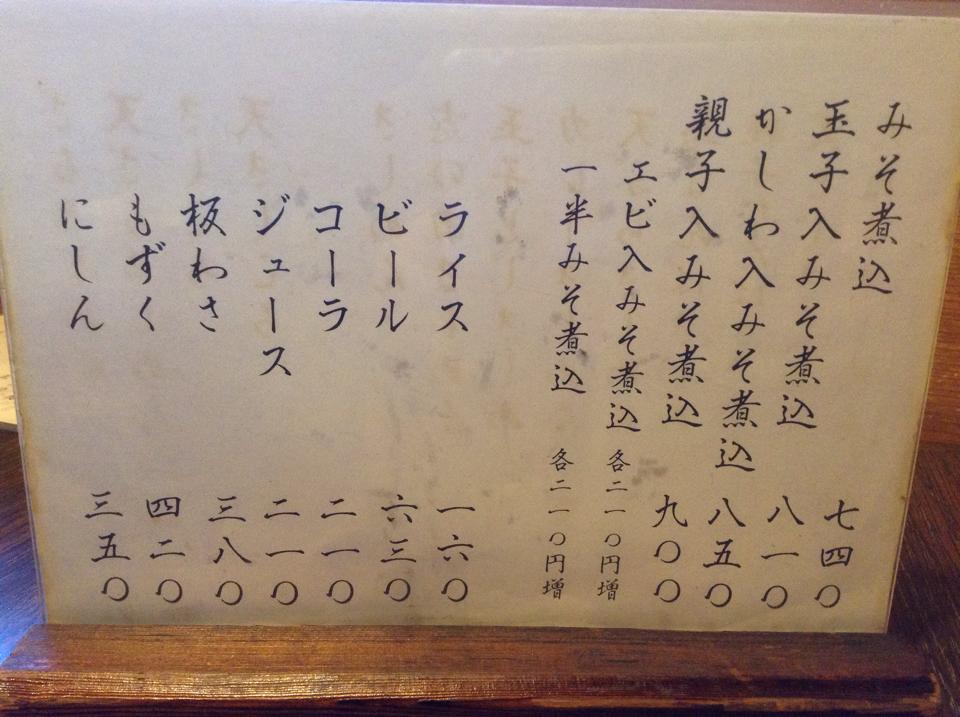 みそ煮込 七四〇
玉子入みそ煮込 八一〇
かしわ入みそ煮込 八五〇
親子入みそ煮込 九〇〇
エビ入みそ煮込 各二一〇円増
一半みそ煮込 各二一〇円増
ライス 一六〇
ビール 六三〇
コーラ 二一〇
ジュース 二一〇
板わさ 三八〇
もずく 四二〇
にしん 三五〇